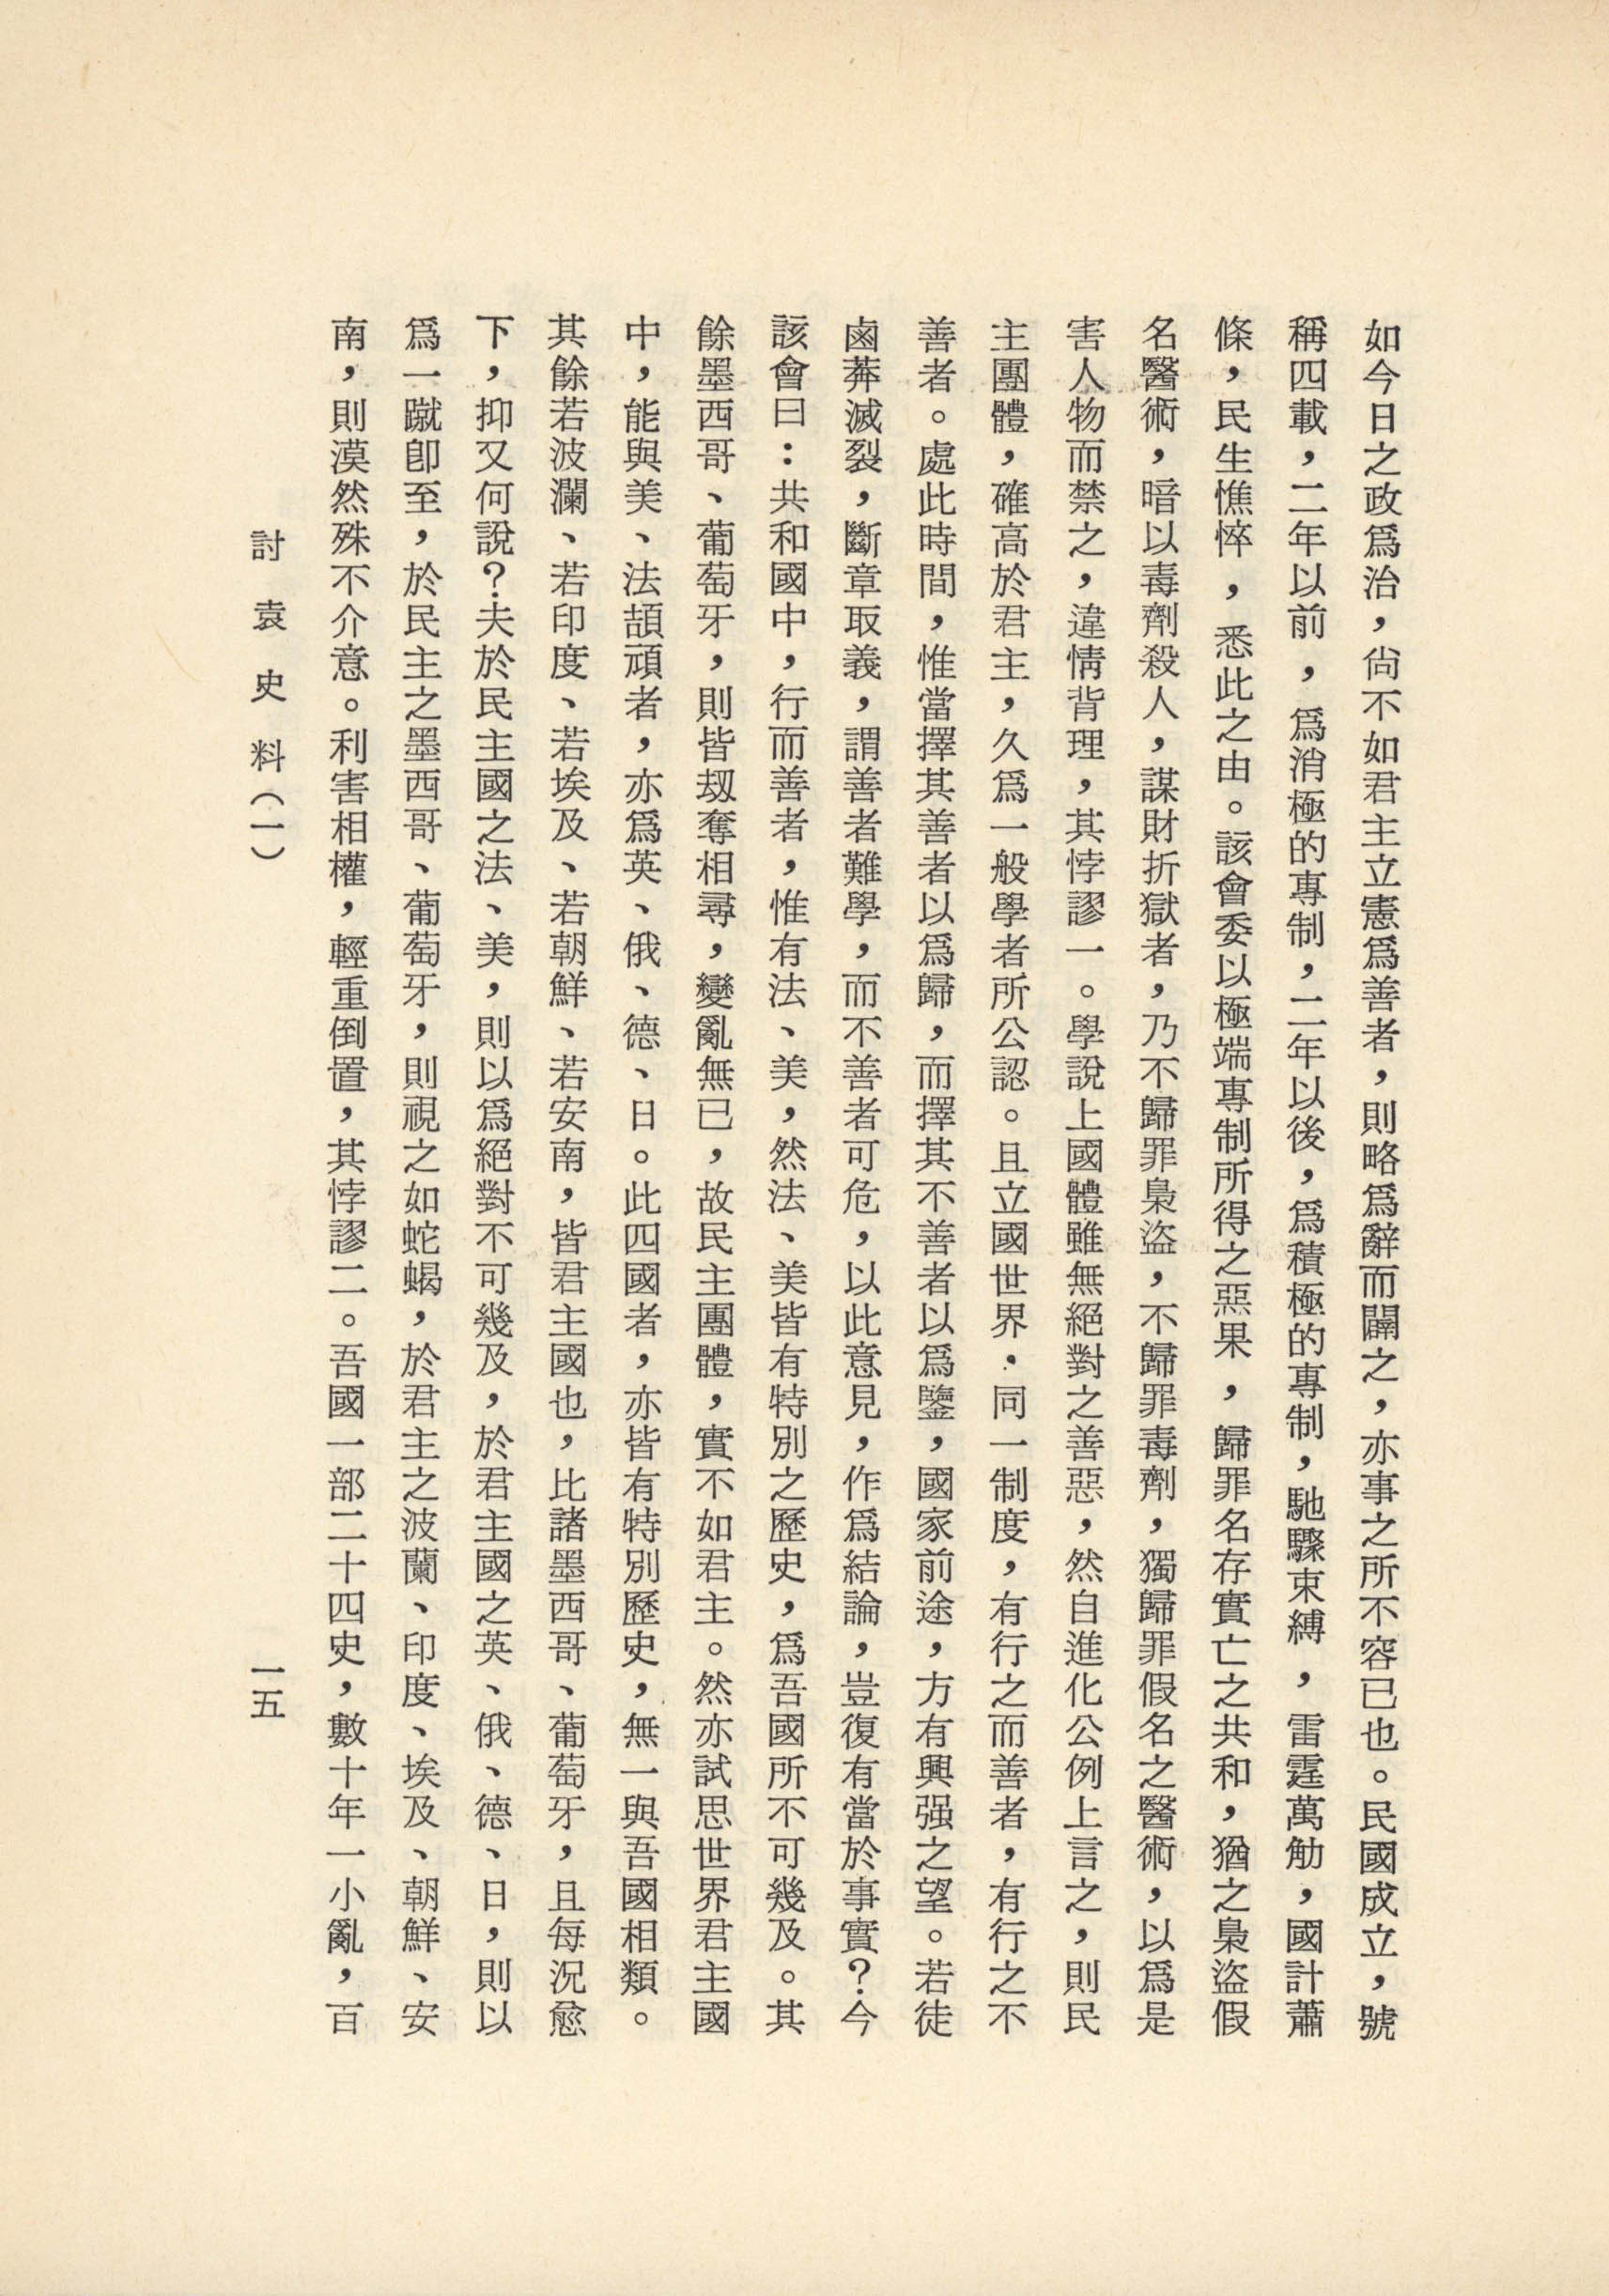 如今日之政爲治，尙不如君主立憲爲善者，則略爲辭而闢之，亦事之所不容已也。民國成立，號
稱四載，二年以前，爲消極的專制，二年以後，爲積極的專制，馳驟束縛，雷霆萬觔，國計蕭
條，民生憔悴，悉此之由。該會委以極端專制所得之惡果，歸罪名存實亡之共和，猶之梟盜假
名醫術，暗以毒劑殺人，謀財折獄者，乃不歸罪梟盜，不歸罪毒劑，獨歸罪假名之醫術，以爲是
害人物而禁之，違情背理，其悖謬一。學說上國體雖無絕對之善惡，然自進化公例上言之，則民
主團體，確高於君主，久爲一般學者所公認。且立國世界．同一制度，有行之而善者，有行之不
善者。處此時間，惟當擇其善者以爲歸，而擇其不善者以爲鑒，國家前途，方有興强之望。若徒
鹵莽滅裂，斷章取義，謂善者難學，而不善者可危，以此意見，作爲結論，豈復有當於事實？今
該會曰：共和國中，行而善者，惟有法、美，然法、美皆有特別之歷史，爲吾國所不可幾及。其
餘墨西哥、葡萄牙，則皆刼奪相尋，變亂無已，故民主團體，實不如君主。然亦試思世界君主國
中，能與美、法頡頏者，亦爲英、俄、德、日。此四國者，亦皆有特別歷史，無一與吾國相類。
其餘若波瀾、若印度、若埃及、若朝鮮、若安南，皆君主國也，比諸墨西哥、葡萄牙，且每況愈
下，抑又何說？夫於民主國之法、美，則以爲絕對不可幾及，於君主國之英、俄、德、日，則以
爲一蹴卽至，於民主之墨西哥、葡萄牙，則視之如蛇蝎，於君主之波蘭、印度、埃及、朝鮮、安
南，則漠然殊不介意。利害相權，輕重倒置，其悖謬二。吾國一部二十四史，數十年一小亂，百
討袁史料（一）
一五